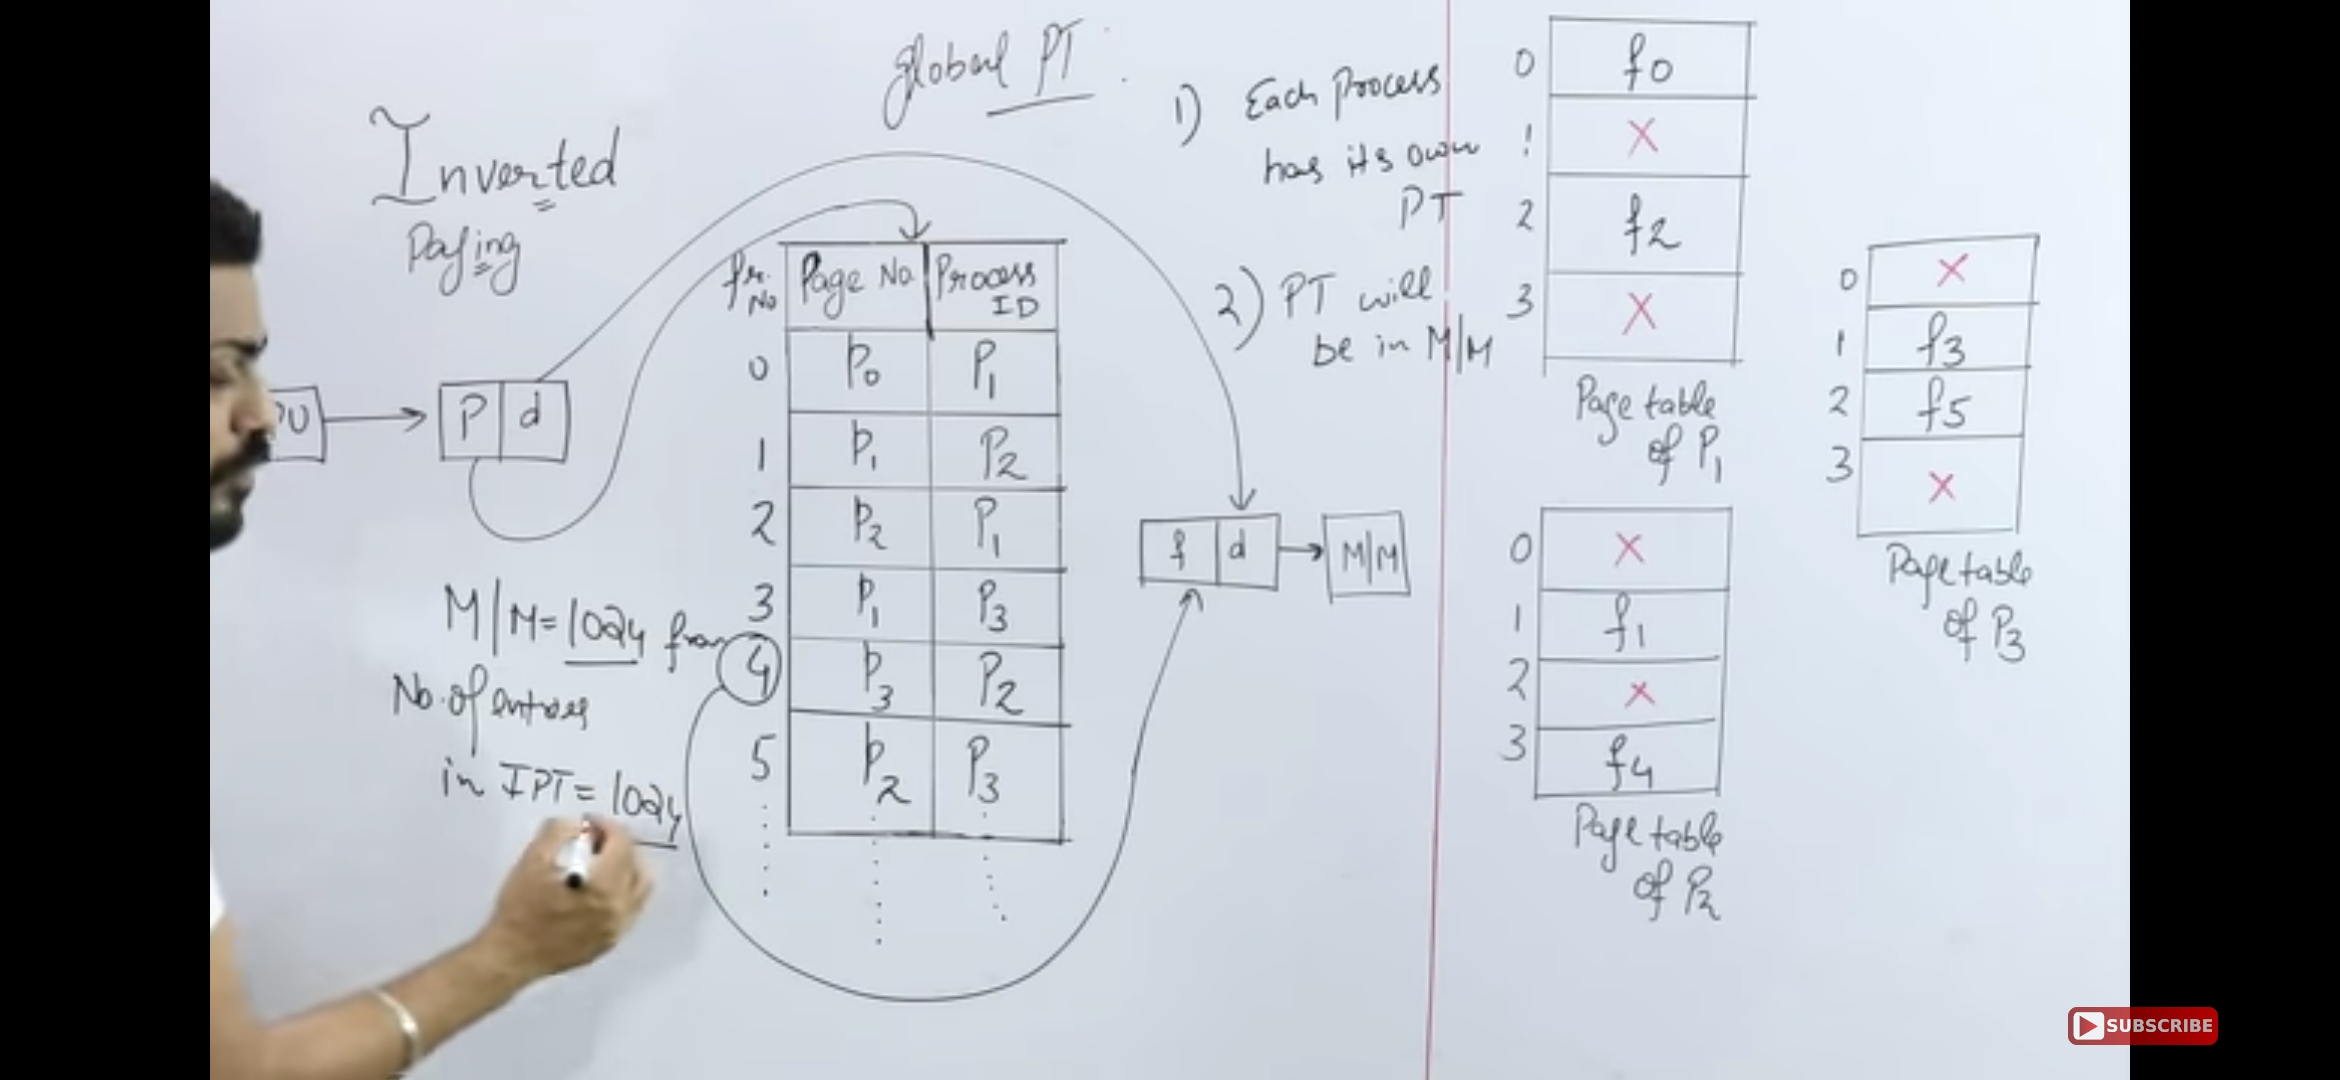 Inverted
Paging
global PT
PU
P d
fr. No Page No Process ID
0 P0 P1
1 P1 P2
2 P2 P1
3 P1 P3
4 P3 P2
5 P2 P3
M/M = 1024 fram
No. of entries
in IPT = 1024
f d
M/M
1) Each Process
has its own
PT
2) PT will
be in M/M
0 f0
1 X
2 f2
3 X
Page table
of P1
0 X
1 f1
2 X
3 f4
Page table
of P2
0 X
1 f3
2 f5
3 X
Page table
of P3
SUBSCRIBE